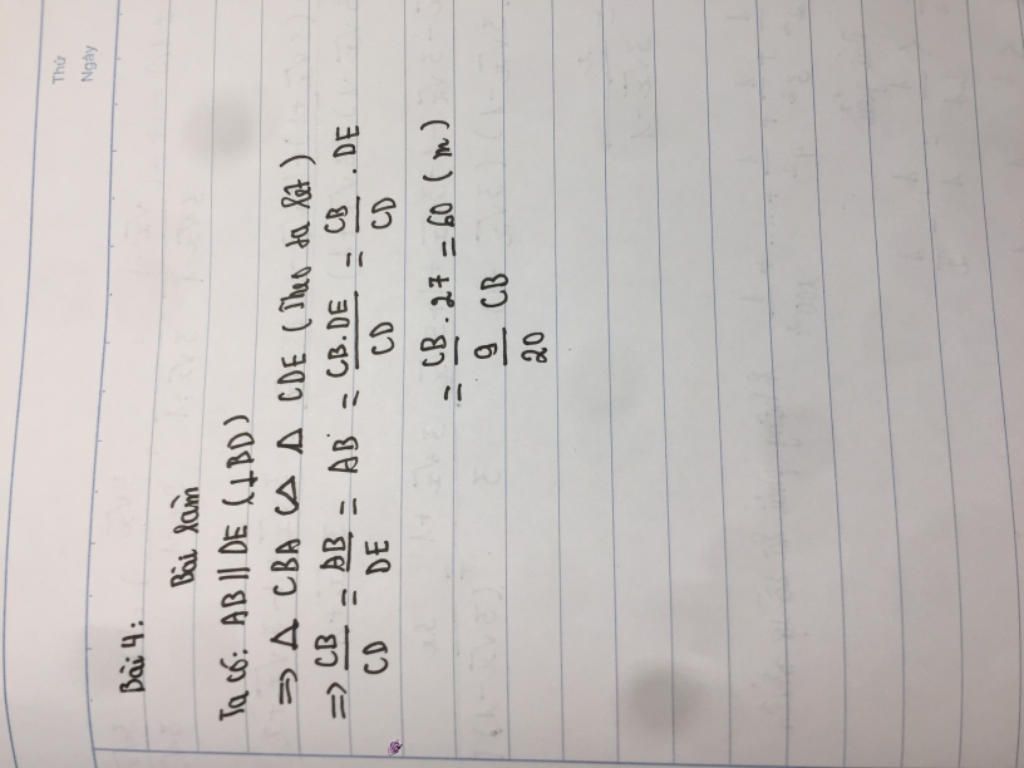 Thứ
Ngày
Bài 4:
Bài làm
Ta có: AB // DE (⊥BD)
=> Δ CBA ∽ Δ CDE (Theo ta lét)
=> CB/CD = AB/DE = AB = CB.DE/CD = CB/CD . DE
= CB/(9/20 CB) . 27 = 60 (m)